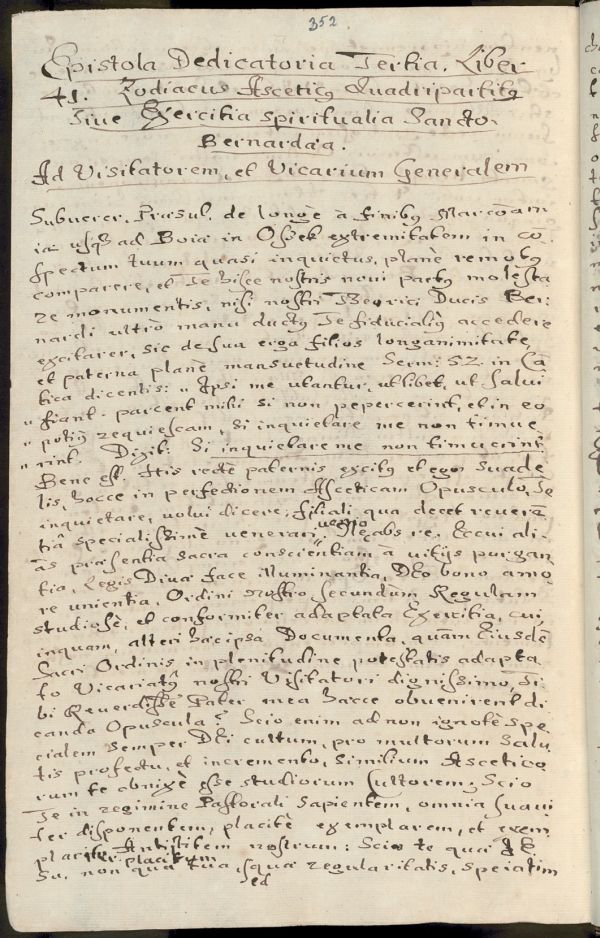 352.
Epistola Dedicatoria Tertia. Liber
41. Zodiacus Asceticꝰ Quadripartitꝰ
Sive Exercitia spiritualia Sancto-
Bernardaa.
Ad Visitatorem, et Vicarium Generalem
Subuerer, Præsul, de longè à finibꝰ Marcoām
ia usqꝫ ad Boia in Ossek extremitatem in co
spectum tuum quasi inquietus, plane remotꝰ
comparere, et Te hisce nostris novi partꝰ molesta
re monumentis, nisi nostri Theorici Ducis Ber:
nardi ultro manu ductꝰ Te fiducialiꝰ accedere
excitarer, sic de sua erga filios longanimitate,
et paterna planè mansuetudine Serm: 52. in Cā
tica dicentis: „ Ipsi me utantur, ut libet, ut salvi
„ fiant. parcent mihi si non pepercerint, et in eo
„ potiꝰ requiescam, si inquietare me non timue
„ rint. Dixit: Si inquietare me non timuerint.
Bene est. His rectè paternis excitꝰ et ego Suadē
lis, hocce in perfectionem Asceticam Opusculo, Te
inquietare, volui dicere, filiali qua decet reverē
tiâ specialissimè venerari venio. Nec abs re. Eccui ali-
às præsentia sacra conscientiam à vitijs purgan
tia, Legis Divæ face illuminantia, Deo bono amo
re unientia, Ordini nostro secundum Regulam
studiosè, et conformiter adaptata Exercitia, cui,
inquam, alteri hæc ipsa Documenta, quàm Eiusdē
Sacri Ordinis in plenitudine potestatis adapta
to Vicariatꝰ nostri Visitatori dignissimo, Ti
bi Reverdisse Pater mea hæcce obvenirent di
canda Opuscula? Scio enim ad non ignotè spe
cialem semper Dei cultum, pro multorum Salu
tis profectu, et incremento, similium Ascetico
rum te obnixè esse studiorum cultorem; Scio
Te in regimine Pastorali sapientem, omnia suavi
ter disponentem, placitè exemplarem, et exem
plariter placitum Antistitem nostrum: Scio te quà
su, non quà tua, squa regularitatis, speciatim
ed